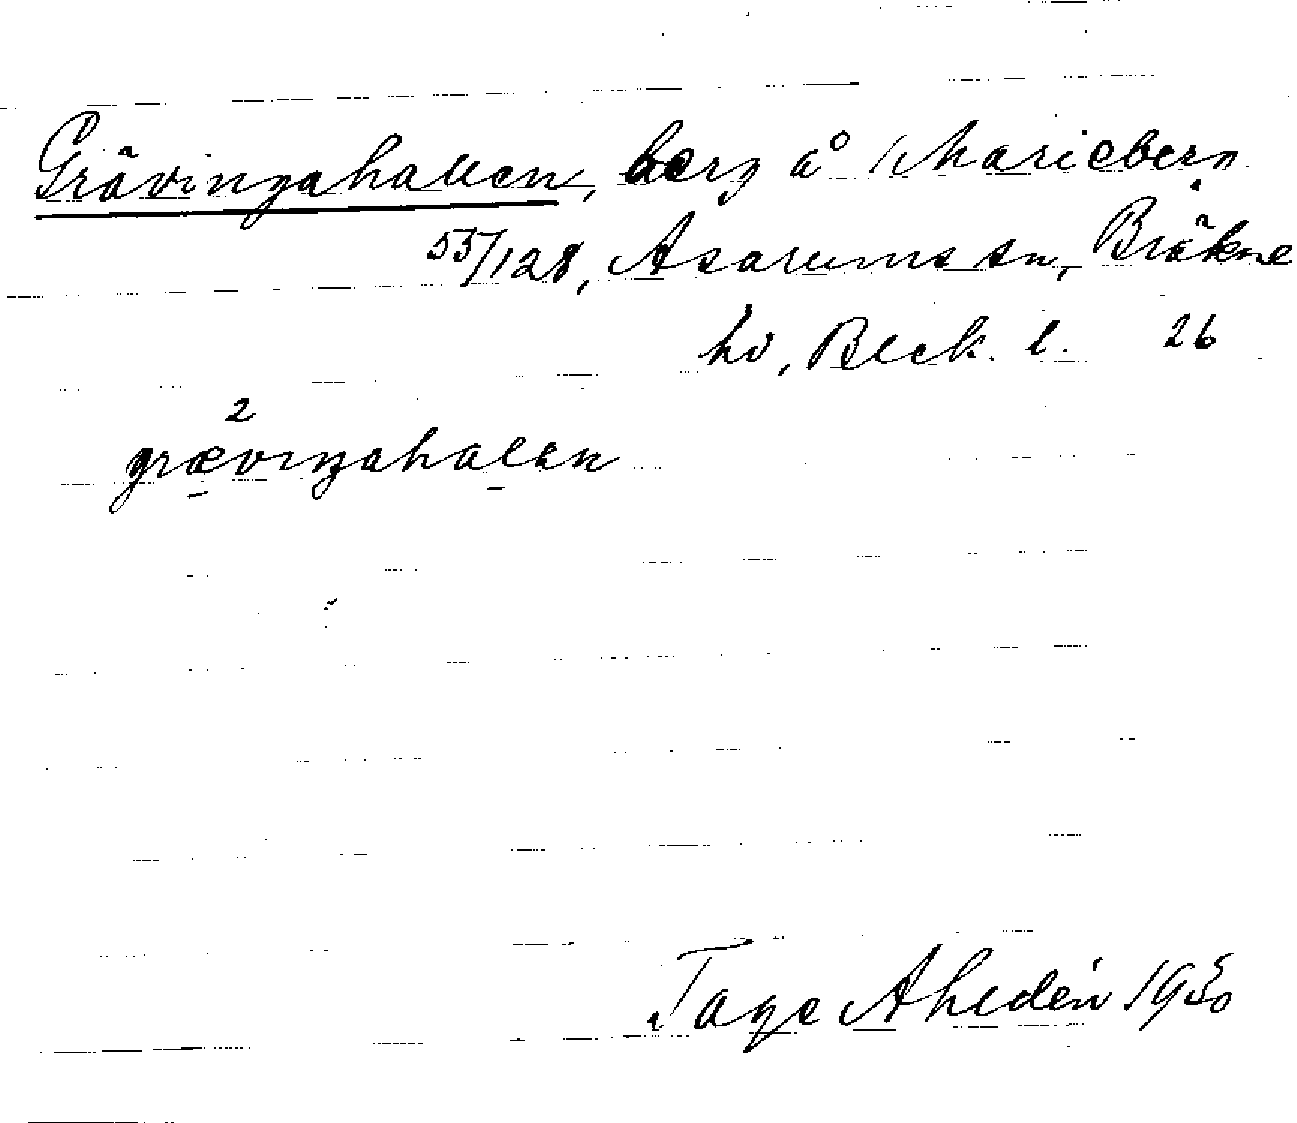 Grävingahallen, berg å Marieberg
55/128, Asarums sn, Bräkne
hd, Blek. l. 26
2
grævingahalen
Tage Ahldén 1950